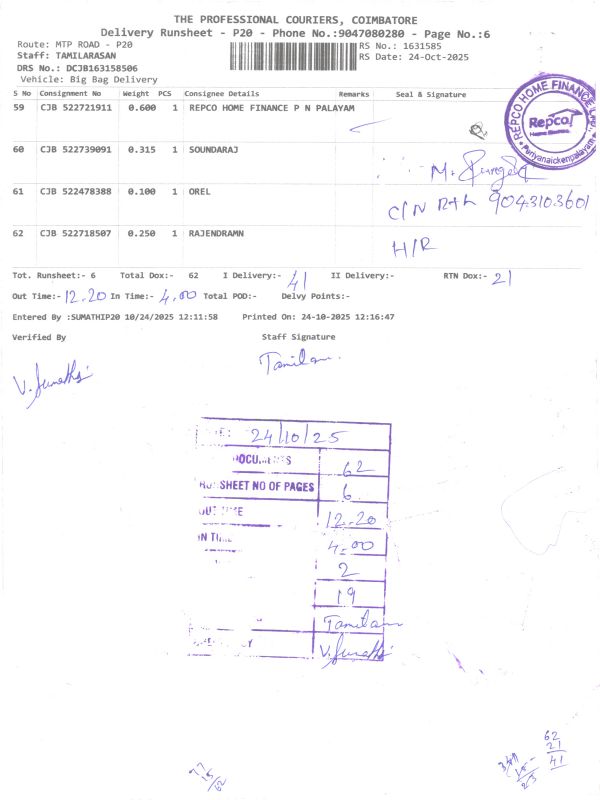 THE PROFESSIONAL COURIERS, COIMBATORE
Delivery Runsheet - P20 - Phone No.:9047080280 - Page No.:6
Route: MTP ROAD - P20
RS No.: 1631585
Staff: TAMILARASAN
RS Date: 24-Oct-2025
DRS No.: DCJB163158506
Vehicle: Big Bag Delivery
S No Consignment No Weight PCS Consignee Details Remarks Seal & Signature
59 CJB 522721911 0.600 1 REPCO HOME FINANCE P N PALAYAM
REPCO HOME FINANCE
Repco
Home Finance
Puriyanaickenpalayam
60 CJB 522739091 0.315 1 SOUNDARAJ
61 CJB 522478388 0.100 1 OREL
C/N 9043103601
62 CJB 522718507 0.250 1 RAJENDRAMN
H/R
Tot. Runsheet:- 6 Total Dox:- 62 I Delivery:- 41 II Delivery:- RTN Dox:- 21
Out Time:- 12.20 In Time:- 4.00 Total POD:- Delvy Points:-
Entered By :SUMATHIP20 10/24/2025 12:11:58 Printed On: 24-10-2025 12:16:47
Verified By Staff Signature
V. Sumathi Tamilan
24/10/25
DOCUMENTS 62
SHEET NO OF PAGES 6
OUT TIME 12.20
IN TIME 4.00
2
19
Tamilan
V. Sumathi
62
21
41